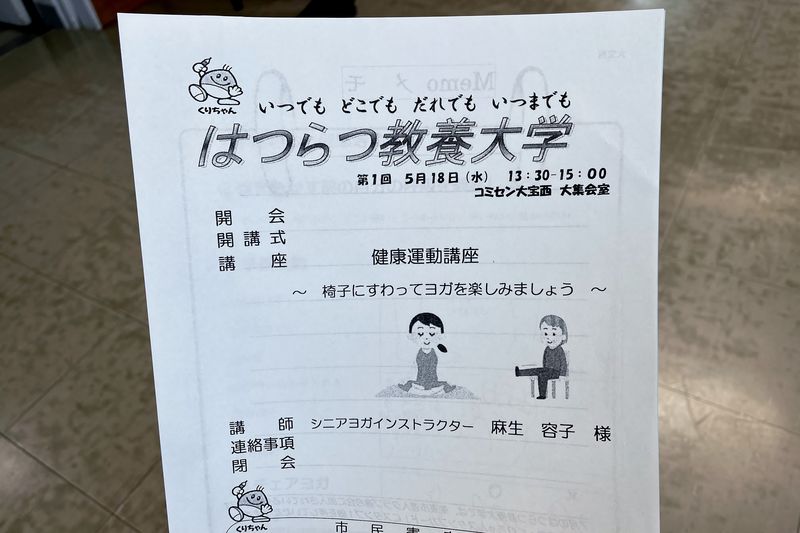 くりちゃん
いつでも どこでも だれでも いつまでも
はつらつ教養大学
第1回 5月18日（水） 13：30-15：00
コミセン大宝西 大集会室
開会
開講式
講座 健康運動講座
～ 椅子にすわってヨガを楽しみましょう ～
講師 シニアヨガインストラクター 麻生 容子 様
連絡事項
閉会
くりちゃん
市民憲
Memo メモ